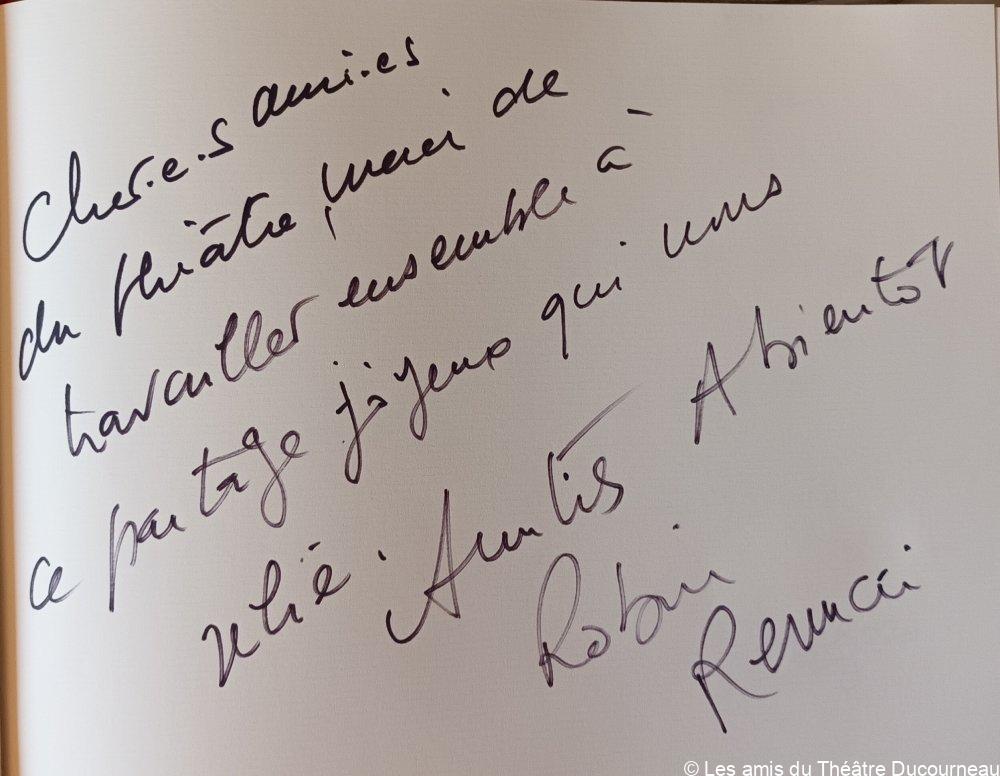 Cher.e.s ami.es
du théâtre, merci de
travailler ensemble à
ce partage joyeux qui nous
relie. Amitiés A bientôt
Robin
Renucci
© Les amis du Théâtre Ducourneau